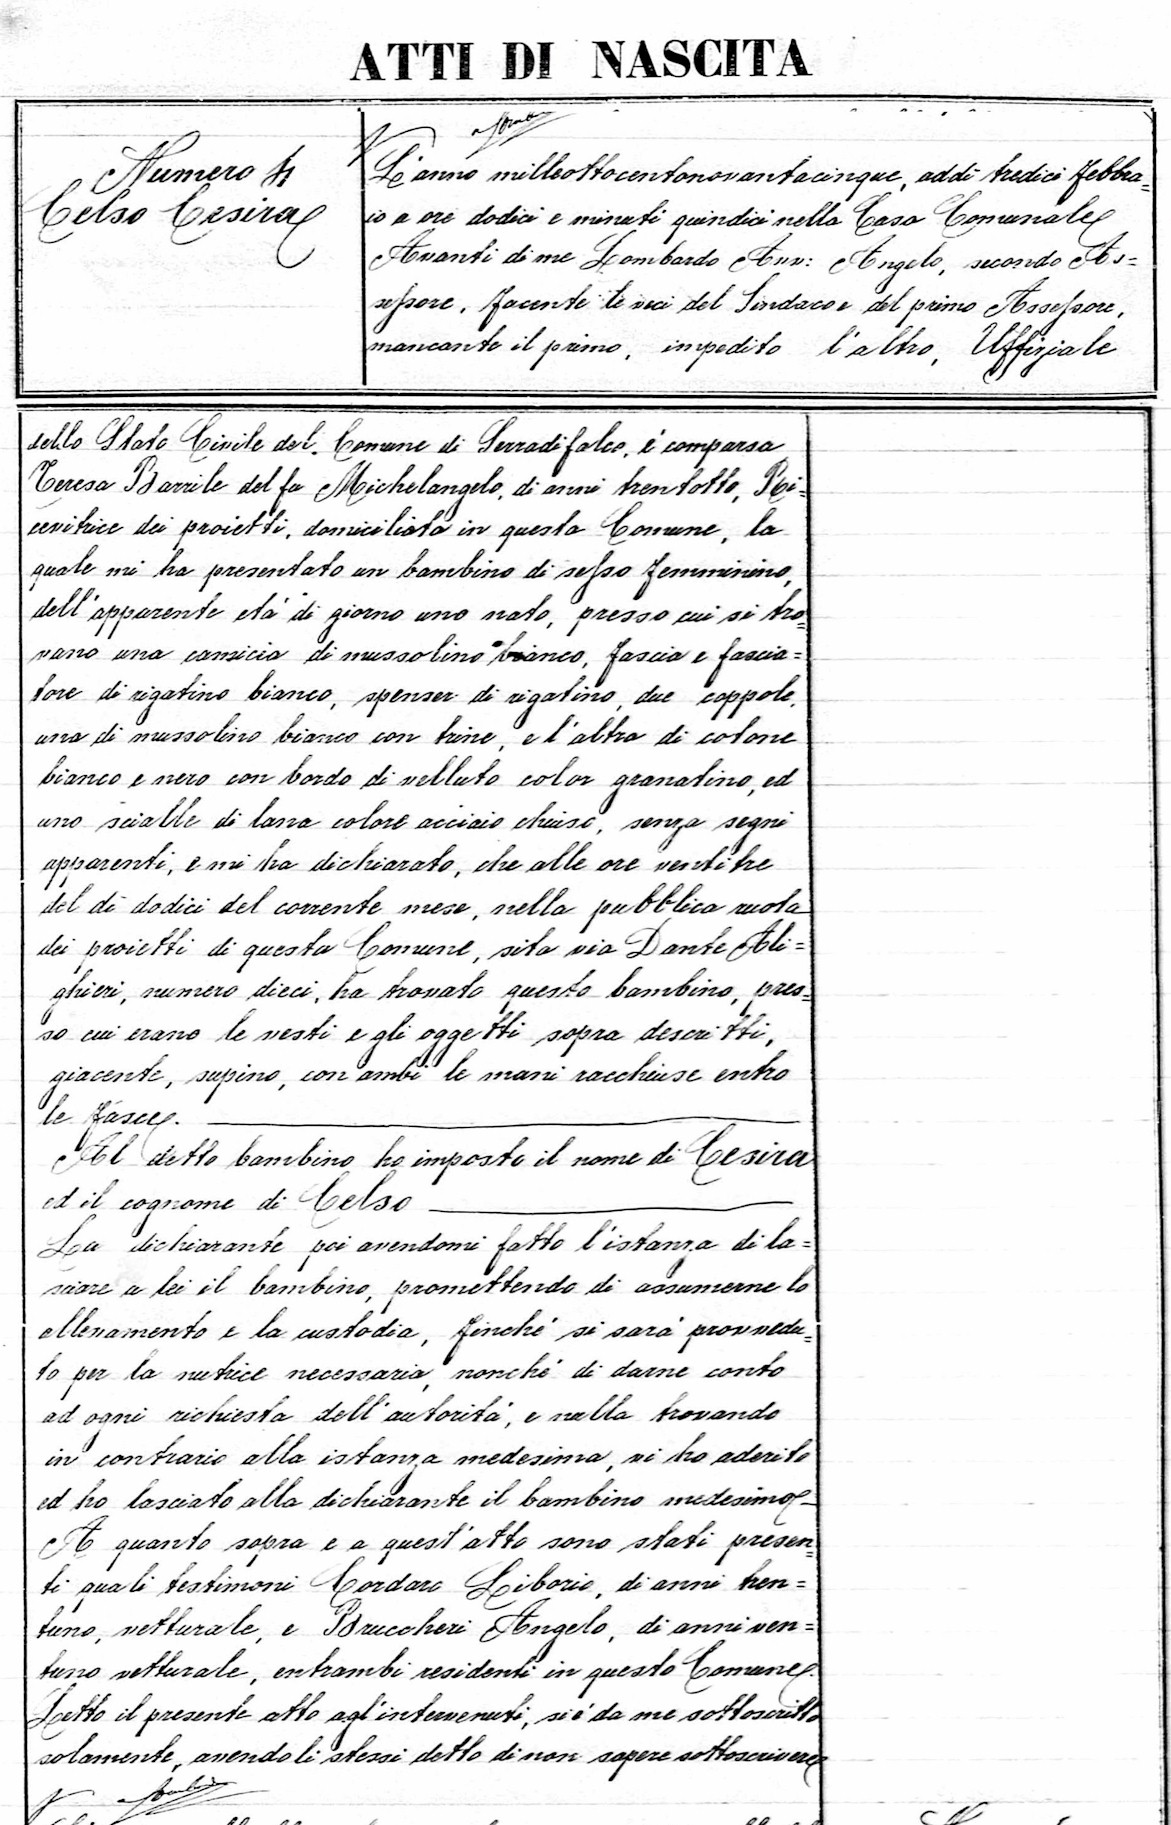 ATTI DI NASCITA
Numero 4
Celso Cesira
L'anno milleottocentonovantacinque, addì tredici Febbra=
io a ore dodici e minuti quindici nella Casa Comunale
Avanti di me Lombardo Avv: Angelo, secondo As=
sessore, facente le veci del Sindaco e del primo Assessore,
mancante il primo, impedito l'altro, Uffiziale
dello Stato Civile del Comune di Serradifalco, è comparsa
Teresa Barrile del fu Michelangelo, di anni trentotto, Ri=
cevitrice dei proietti, domiciliata in questo Comune, la
quale mi ha presentato un bambino di sesso femminino,
dell'apparente età di giorno uno nato, presso cui si tro=
vano una camicia di mussolino bianco, fascia e fascia=
tore di rigatino bianco, spenser di rigatino, due coppole,
una di mussolino bianco con trine, e l'altra di cotone
bianco e nero con bordo di velluto color granatino, ed
uno scialle di lana colore acciaio chiuso, senza segni
apparenti, e mi ha dichiarato, che alle ore ventitre
del dì dodici del corrente mese, nella pubblica ruota
dei proietti di questo Comune, sita via Dante Ali=
ghieri, numero dieci, ha trovato questo bambino, pres=
so cui erano le vesti e gli oggetti sopra descritti,
giacente, supino, con ambi le mani racchiuse entro
le fasce.
Al detto bambino ho imposto il nome di Cesira
ed il cognome di Celso
La dichiarante poi avendomi fatto l'istanza di la=
sciare a lei il bambino, promettendo di assumerne lo
allevamento e la custodia, finché si sarà provvedu=
to per la nutrice necessaria, nonché di darne conto
ad ogni richiesta dell'autorità, e nulla trovando
in contrario alla istanza medesima, vi ho aderito
ed ho lasciato alla dichiarante il bambino medesimo
A quanto sopra e a quest'atto sono stati presen=
ti quali testimoni Cordaro Liborio, di anni tren=
tuno, vetturale, e Bruccheri Angelo, di anni ven=
tuno vetturale, entrambi residenti in questo Comune.
Letto il presente atto agl'intervenuti, si è da me sottoscritto
solamente, avendo li stessi detto di non sapere sottoscrivere